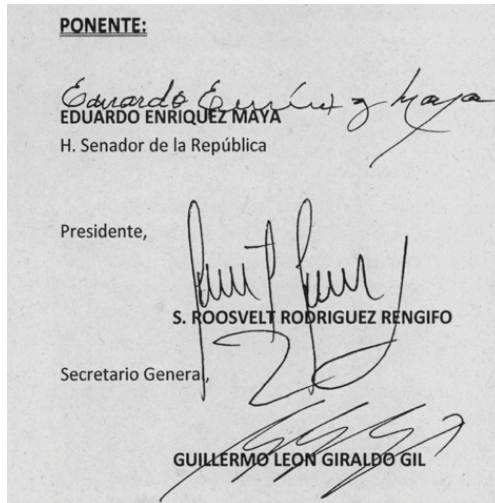 PONENTE:
Eduardo Enríquez Maya
EDUARDO ENRIQUEZ MAYA
H. Senador de la República
Presidente,
S. ROOSVELT RODRIGUEZ RENGIFO
Secretario General,
GUILLERMO LEON GIRALDO GIL